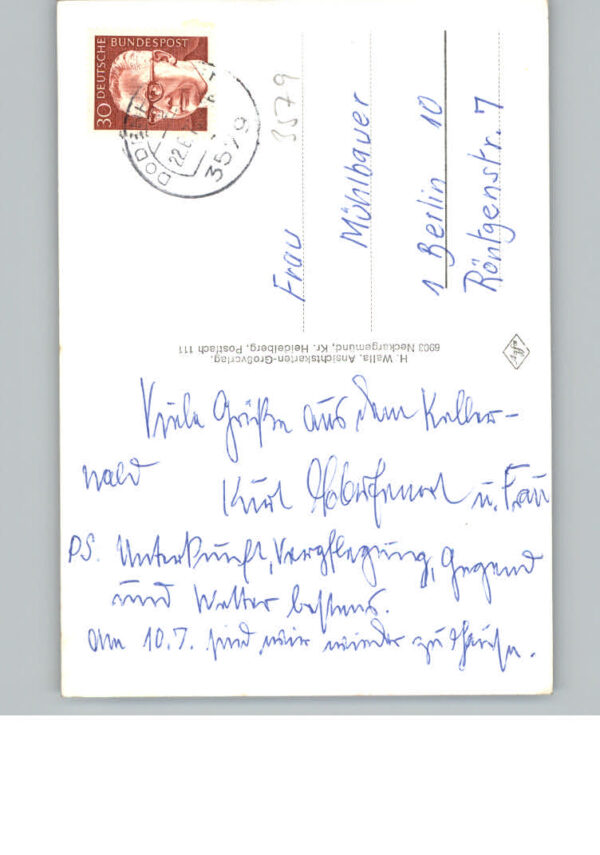 30
DEUTSCHE
BUNDESPOST
3579
22.6.
3579
Frau
Mühlbauer
1 Berlin 10
Röntgenstr. 7
H. Walla, Ansichtskarten-Großverlag,
6903 Neckargemünd, Kr. Heidelberg, Postfach 111
Viele Grüße aus dem Keller-
wald
Kurt u. Frau
PS. Unterkunft, Verpflegung, Gegend
und Wetter bestens.
Am 10.7. sind wir wieder zu Hause.